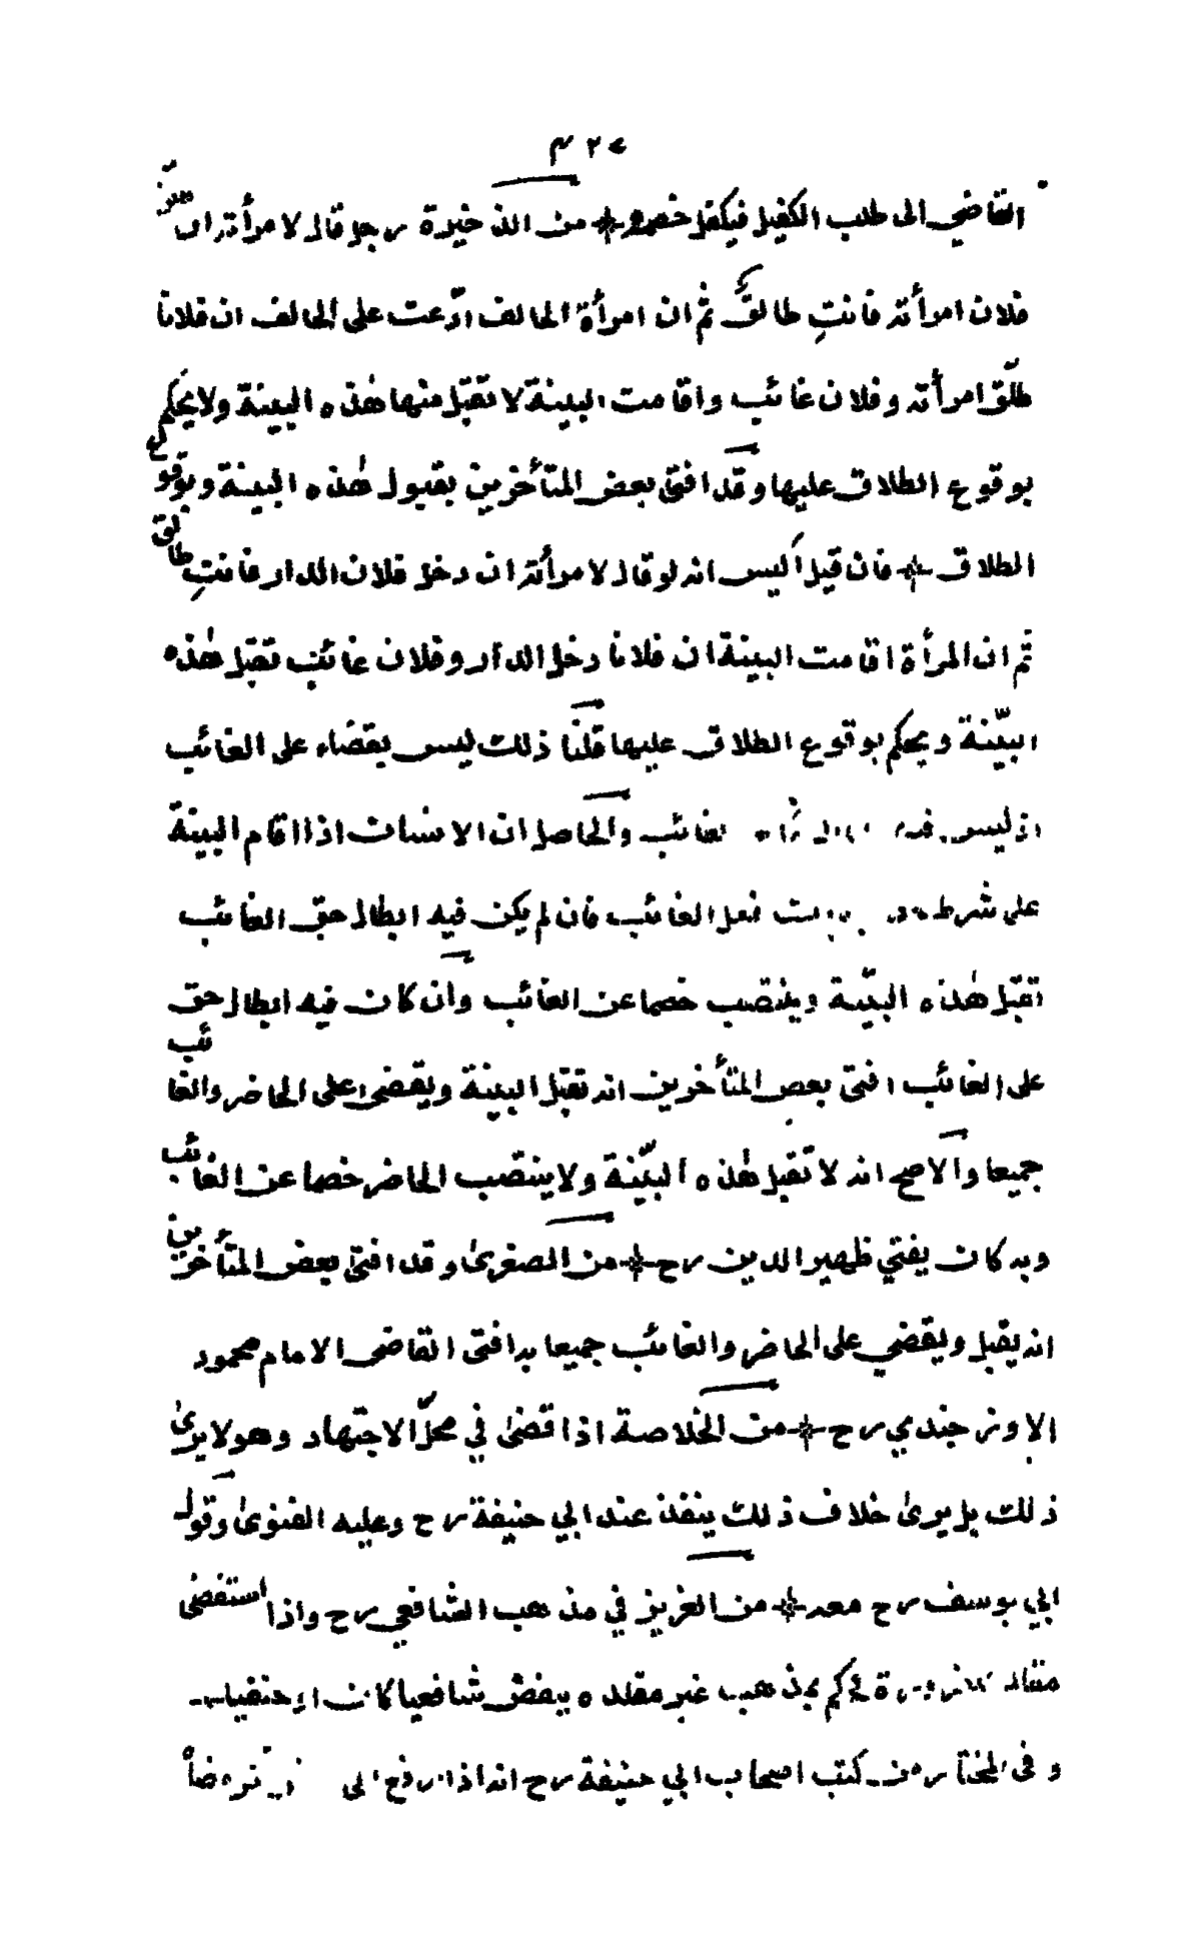 القاضي الى طلب الكفيل فيكفل خصمه من الذخيرة رجل قال لامرأته ان طلق
فلان امرأته فانتِ طالق ثم ان امرأة الحالف ادّعت على الحالف ان فلانا
طلّق امرأته وفلان غائب واقامت البينة لا تقبل منها هذه البينة ولا يحكم
بوقوع الطلاق عليها وقد افتى بعض المتأخرين بقبول هذه البينة وبوقوع
الطلاق فان قيل أليس انه لو قال لامرأته ان دخل فلان الدار فانتِ طالق
ثم ان المرأة اقامت البينة ان فلانا دخل الدار وفلان غائب تقبل هذه
البيّنة ويحكم بوقوع الطلاق عليها قلنا ذلك ليس بقضاء على الغائب
اذ ليس فيه غائب والحاصل ان الانسان اذا اقام البينة
على شرط فعل الغائب فان لم يكن فيه ابطال حق الغائب
تقبل هذه البيّنة وينتصب خصما عن الغائب وان كان فيه ابطال حق
على الغائب افتى بعض المتأخرين انه تقبل البينة ويقضى على الحاضر والغائب
جميعا والاصح انه لا تقبل هذه البيّنة ولا ينتصب الحاضر خصما عن الغائب
وبه كان يفتي ظهير الدين رح من الصغرىٰ وقد افتى بعض المتأخرين
انه يقبل ويقضي على الحاضر والغائب جميعا به افتى القاضى الامام محمود
الاوزجندي رح من الخلاصة اذا قضىٰ في محلّ الاجتهاد وهو لا يرىٰ
ذلك بل يرىٰ خلاف ذلك ينفذ عند ابي حنيفة رح وعليه الفتوىٰ وقول
ابي يوسف رح معه من العزيز في مذهب الشافعي رح واذا استقضى
مقلد للضرورة فحكم بمذهب غير مقلده ينقض شافعيا كان او حنفيا
وفى المختار من كتب اصحاب ابي حنيفة رح انه اذا رفع الى